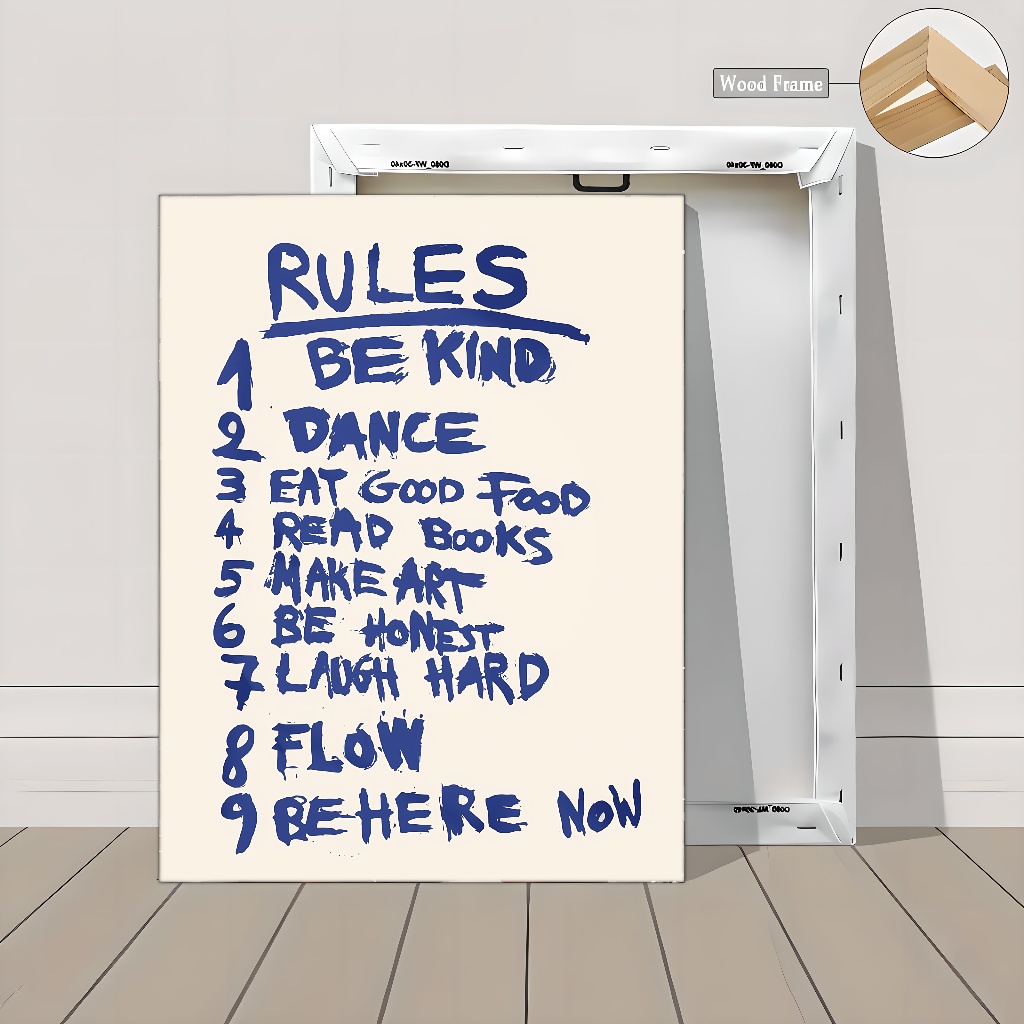 Wood Frame
RULES
1 BE KIND
2 DANCE
3 EAT GOOD FOOD
4 READ BOOKS
5 MAKE ART
6 BE HONEST
7 LAUGH HARD
8 FLOW
9 BE HERE NOW